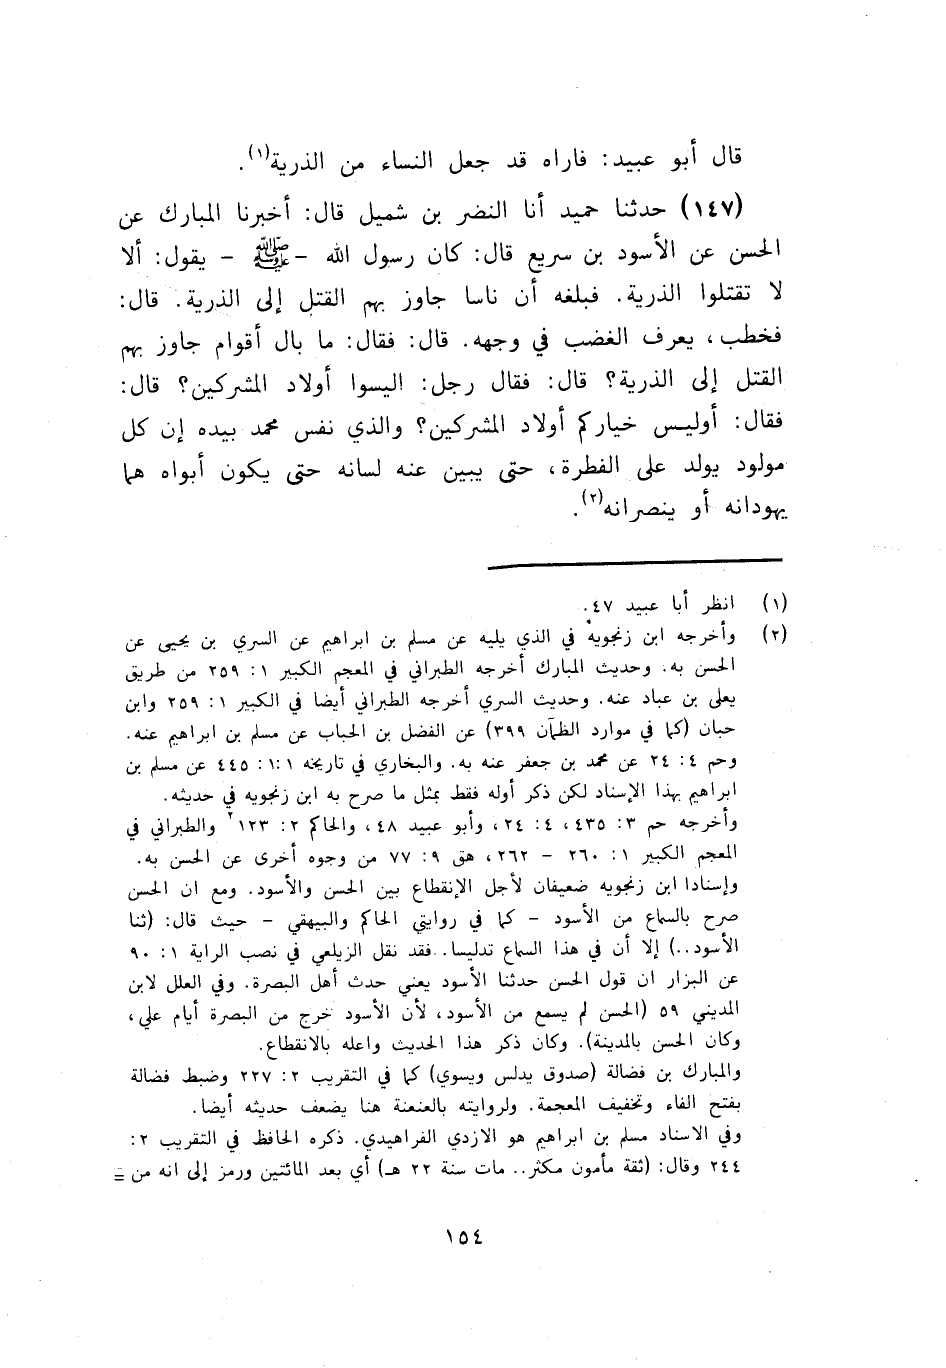 قال أبو عبيد: فاراه قد جعل النساء من الذرية(١).
(١٤٧) حدثنا حميد أنا النضر بن شميل قال: أخبرنا المبارك عن
الحسن عن الأسود بن سريع قال: كان رسول الله - ﷺ - يقول: ألا
لا تقتلوا الذرية. فبلغه أن ناسا جاوز بهم القتل إلى الذرية. قال:
فخطب، يعرف الغضب في وجهه. قال: فقال: ما بال أقوام جاوز بهم
القتل إلى الذرية؟ قال: فقال رجل: اليسوا أولاد المشركين؟ قال:
فقال: أوليس خياركم أولاد المشركين؟ والذي نفس محمد بيده إن كل
مولود يولد على الفطرة، حتى يبين عنه لسانه حتى يكون أبواه هما
يهودانه أو ينصرانه(٢).
(١) انظر أبا عبيد ٤٧.
(٢) وأخرجه ابن زنجويه في الذي يليه عن مسلم بن ابراهيم عن السري بن يحيى عن
الحسن به. وحديث المبارك أخرجه الطبراني في المعجم الكبير ١: ٢٥٩ من طريق
يعلى بن عباد عنه. وحديث السري أخرجه الطبراني أيضا في الكبير ١: ٢٥٩ وابن
حبان (كما في موارد الظمآن ٣٩٩) عن الفضل بن الحباب عن مسلم بن ابراهيم عنه.
وحم ٤: ٢٤ عن محمد بن جعفر عنه به. والبخاري في تاريخه ١:١: ٤٤٥ عن مسلم بن
ابراهيم بهذا الإسناد لكن ذكر أوله فقط بمثل ما صرح به ابن زنجويه في حديثه.
وأخرجه حم ٣: ٤٣٥، ٤: ٢٤، وأبو عبيد ٤٨، والحاكم ٢: ١٢٣ والطبراني في
المعجم الكبير ١: ٢٦٠ - ٢٦٢، هق ٩: ٧٧ من وجوه أخرى عن الحسن به.
وإسنادا ابن زنجويه ضعيفان لأجل الإنقطاع بين الحسن والأسود. ومع ان الحسن
صرح بالسماع من الأسود - كما في روايتي الحاكم والبيهقي - حيث قال: (ثنا
الأسود..) إلا أن في هذا السماع تدليسا.. فقد نقل الزيلعي في نصب الراية ١: ٩٠
عن البزار ان قول الحسن حدثنا الأسود يعني حدث أهل البصرة. وفي العلل لابن
المديني ٥٩ (الحسن لم يسمع من الأسود، لأن الأسود خرج من البصرة أيام علي،
وكان الحسن بالمدينة). وكان ذكر هذا الحديث واعله بالانقطاع.
والمبارك بن فضالة (صدوق يدلس ويسوي) كما في التقريب ٢: ٢٢٧ وضبط فضالة
بفتح الفاء وتخفيف المعجمة. ولروايته بالعنعنة هنا يضعف حديثه أيضا.
وفي الاسناد مسلم بن ابراهيم هو الازدي الفراهيدي. ذكره الحافظ في التقريب ٢:
٢٤٤ وقال: (ثقة مأمون مكثر.. مات سنة ٢٢ هـ) أي بعد المائتين ورمز إلى انه من =
١٥٤